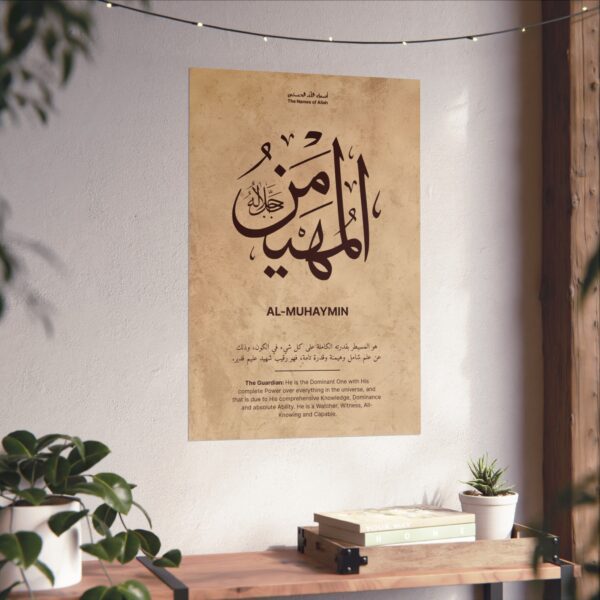 أسماء الله الحسنى
The Names of Allah
المهيمن
جل جلاله
AL-MUHAYMIN
هو المسيطر بقدرته الكاملة على كل شيء في الكون، وذلك
عن علم شامل وهيمنة وقدرة تامة، فهو رقيب شهيد عليم قدير.
The Guardian: He is the Dominant One with His
complete Power over everything in the universe, and
that is due to His comprehensive Knowledge, Dominance
and absolute Ability. He is a Watcher, Witness, All-
Knowing and Capable.